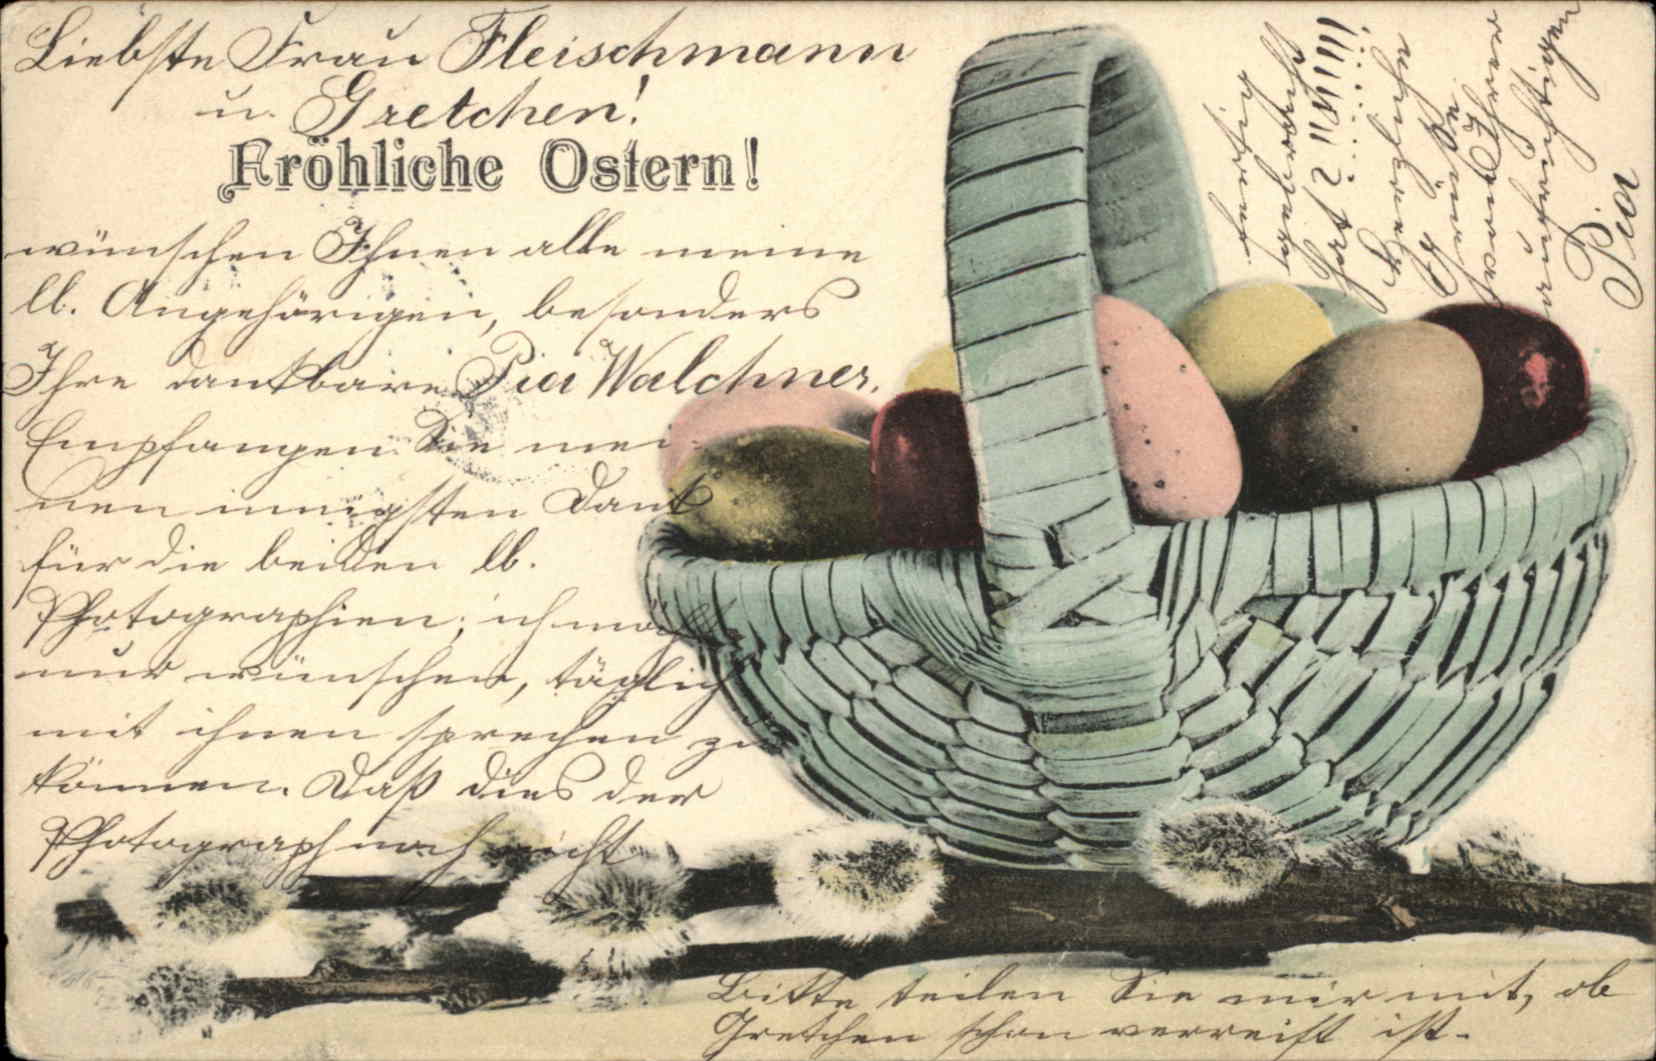 Liebste Frau Fleischmann
u. Gretchen!
Fröhliche Ostern!
wünschen Ihnen alle meine
lb. Angehörigen, besonders
Ihre dankbare Pia Walchner.
Empfangen Sie mei
nen innigsten Dank
für die beiden lb.
Photographien; ich möcht
nur wünschen, täglich
mit ihnen sprechen zu
können. Daß dies der
Photograph noch nicht
erfand
hat ? !!!!!!
aufrichtigen
Pia
Bitte teilen Sie mir mit, ob
Gretchen schon verreist ist.